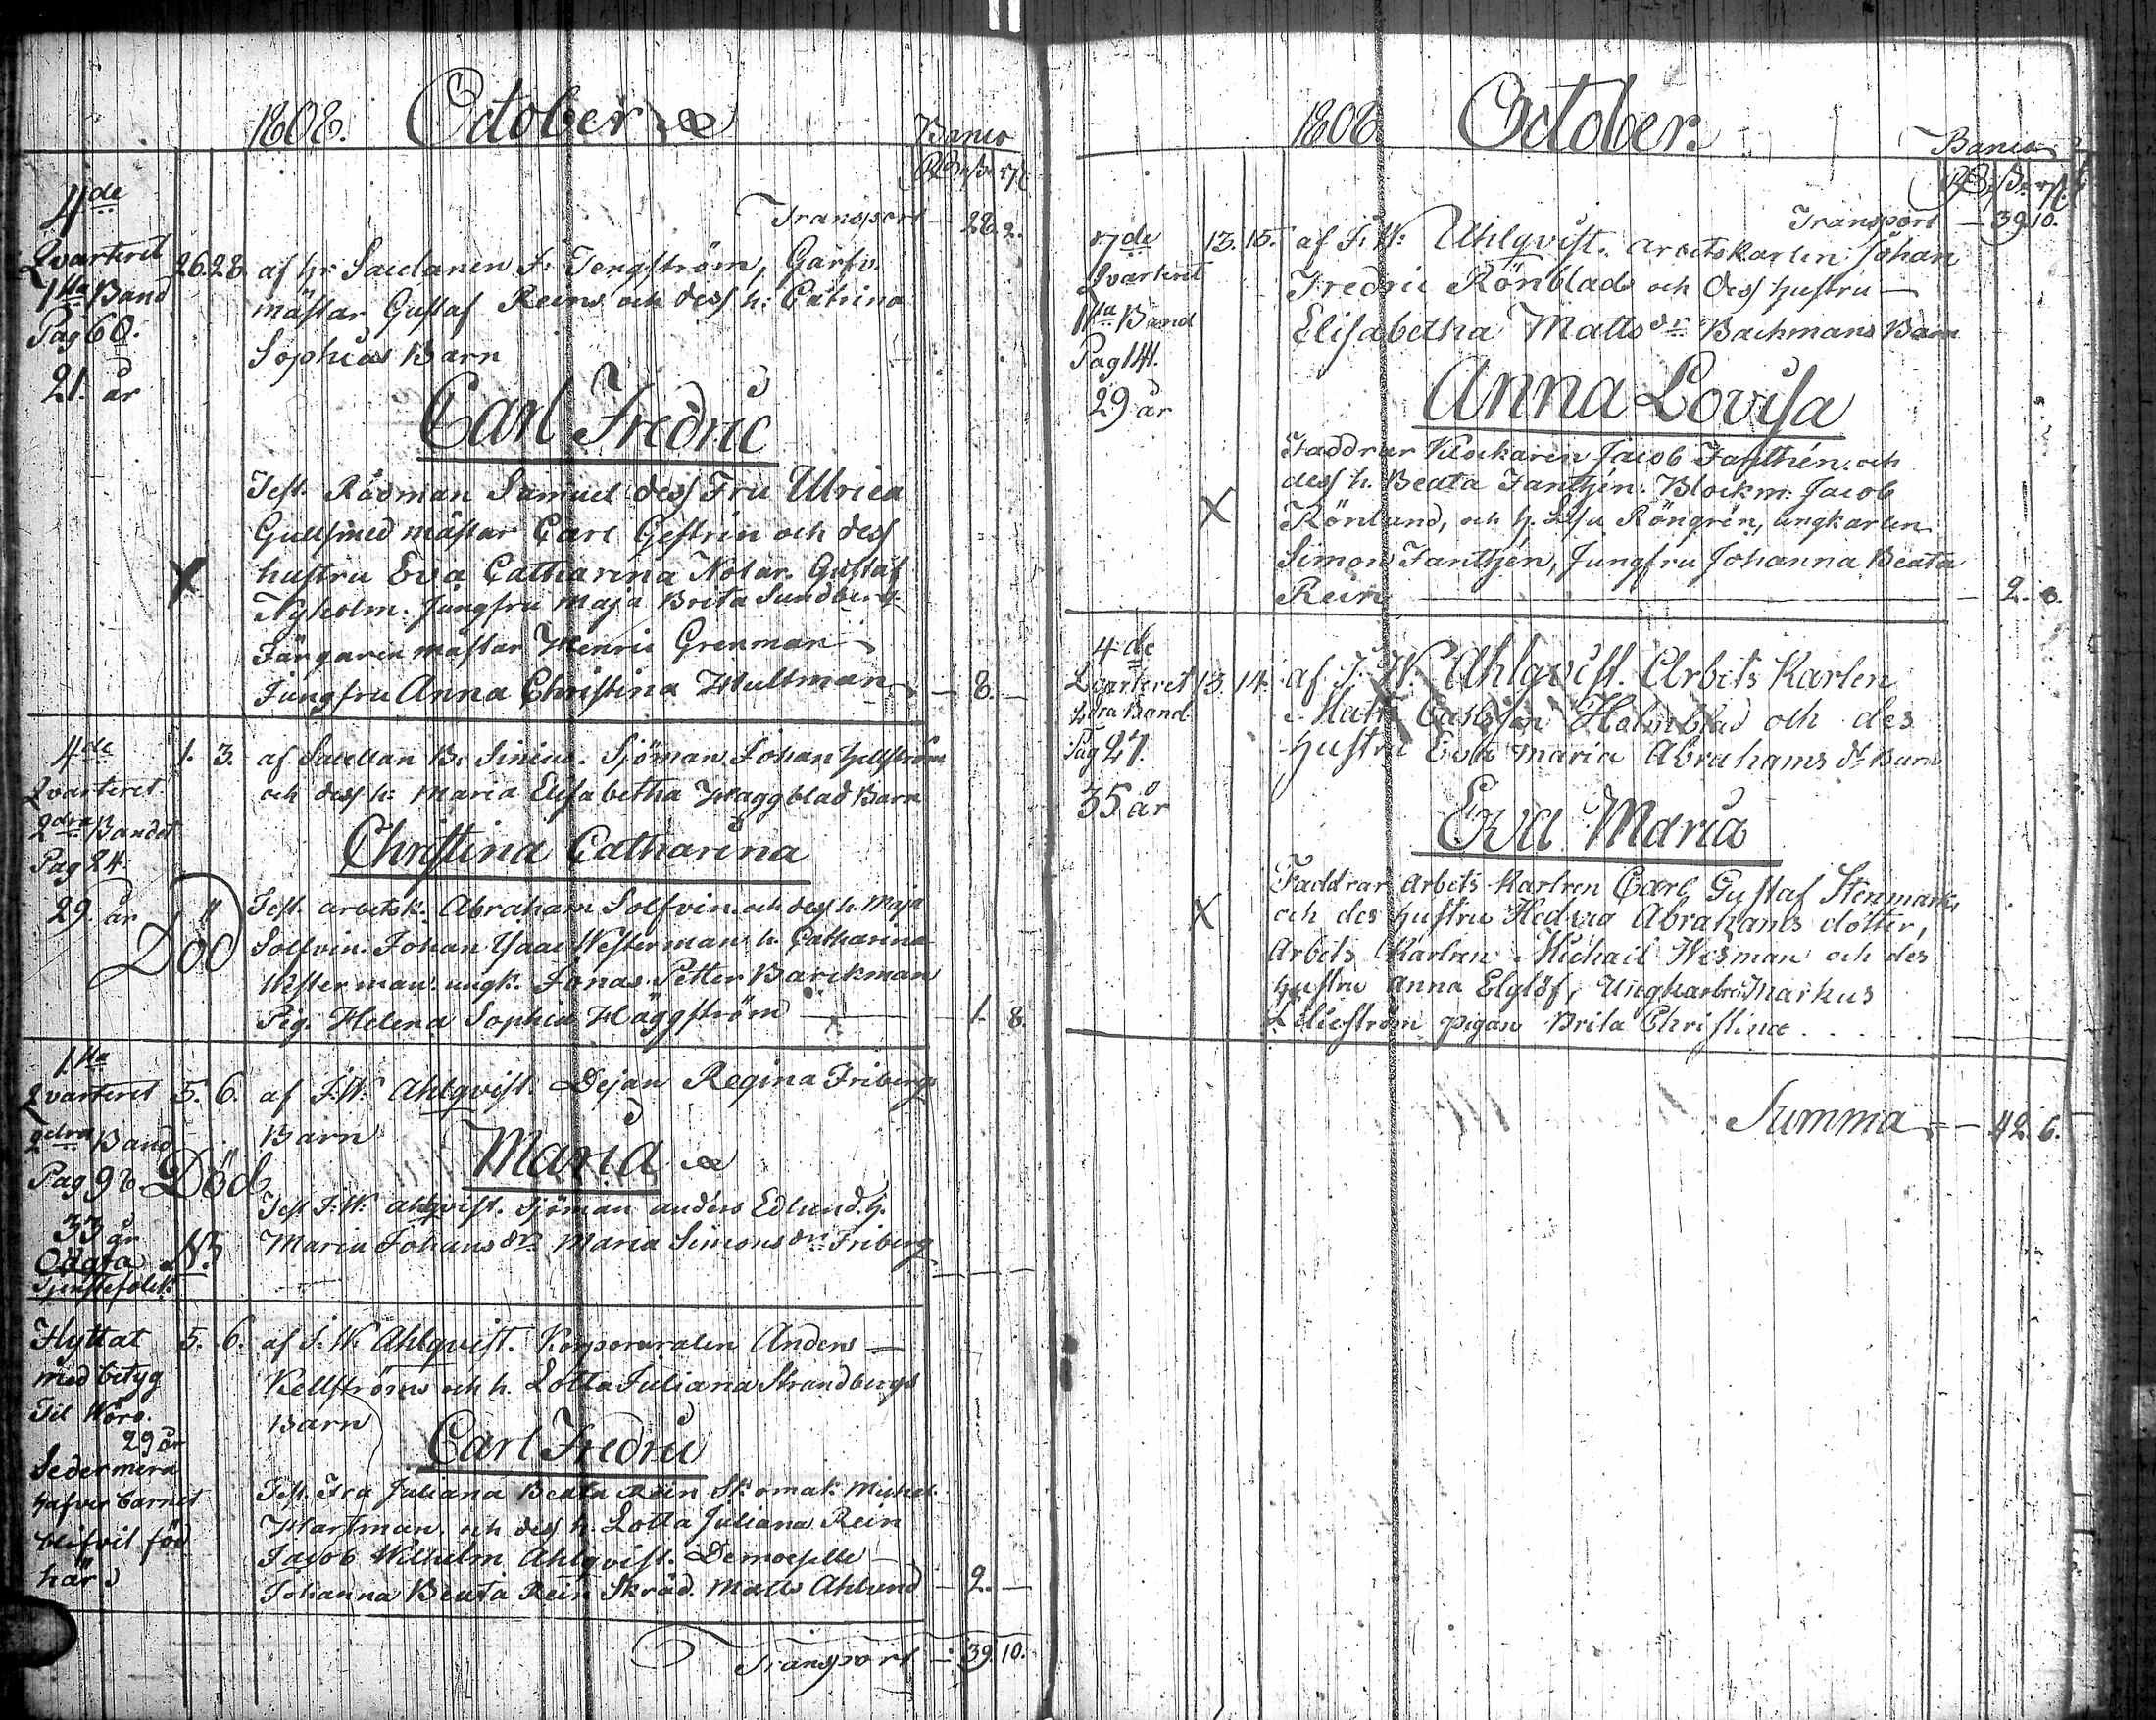 1808. October
Banco
Transport - 28. 2.
4de
Qvarteret
1sta Band
Pag 60.
21. år
26. 28. af hr. Sacelanen J. Tengström, Garfv.
mästar Gustaf Rein och dess h. Catrina
Sophias Barn
Carl Fredric
Test. Rådman Samuel dess Fru Ulrica
Gullsmed mästar Carl Gestrin och dess
hustru Eva Catharina Notar. Gustaf
Nyholm. Jungfru Maja Brita Sundberg
Färgaren mästar Henric Grenman
Jungfru Anna Christina Hultman - 8. -
X
4de
Qvarteret
2dra Bandet
Pag 24
29. år
Död
1. 3. af Sacellan B. Sinius. Sjöman Johan Hellström
och dess h: Maria Elisabetha Häggblad Barn
Christina Catharina
Test. arbetsk. Abraham Solfvin. och dess h. Maja
Solfvin. Johan Isaac Westerman h. Catharina
Westerman. ungk. Jonas Petter Barckman
Pig. Helena Sophia Häggström - 1. 8.
1sta
Qvarteret
2dra Band
Pag 98. Död
33 år
Tjenstefolck
5. 6. af J.W. Ahlqvist. Dejan Regina Fribergs
Barn
Maria
Test J.W. Ahlqvist. Sjöman anders Edlund. h.
Maria Johans dr. Maria Simons dr. Friberg
Flyttat
med betyg
Til Wörå.
29 år
Sedermera
hafver barnet
blifvit föd
här
5. 6. af J. W. Ahlqvist. Korporaralen Anders
Kellström och h. Lotta Juliana Strandbergs
Barn
Carl Fredric
Test. Fru Juliana Beata Rein Skomak. Michel
Hartman. och dess h. Lotta Juliana Rein
Jacob Wilhelm Ahlqvist. Demoiselle
Johanna Beata Rein Skräd. Matts Ahlund - 2. -
Transport - 39. 10.
1808 October.
Banco
Transport - 39. 10.
7de
Qvarteret
1sta Band
Pag 141.
29 år
13. 15. af J. W. Ahlqvist. arbetskarlen Johan
Fredric Rönblad och dess hustru
Elisabetha Matts dr Backmans Barn
Anna Lovisa
Faddrar Klockaren Jacob Fanthén. och
dess h. Beata Fanthén. Blockm. Jacob
Rönlund, och h. Lisa Röngrén, ungkarlen
Simon Fanthén, Jungfru Johanna Beata
Rein - 2. 8.
X
4de
Qvarteret
2dra Band
Pag 27.
35 år
13. 14. af J. W. Ahlqvist. Arbets Karlen
Matts Carlsson Holmblad och des
hustru Eva Maria Abrahams dr Barn
Eva Maria
Faddrar Arbets karlren Carl Gustaf Stenmark
och des hustru Hedvig Abrahams dotter,
Arbets Karlren Michail Wesman och des
hustru Anna Elglöf, Ungkarlren Markus
Lilieström pigan Brita Christina
X
Summa - 42. 6.